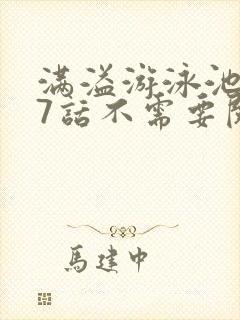 满溢游泳池
7話不需要
馬建中